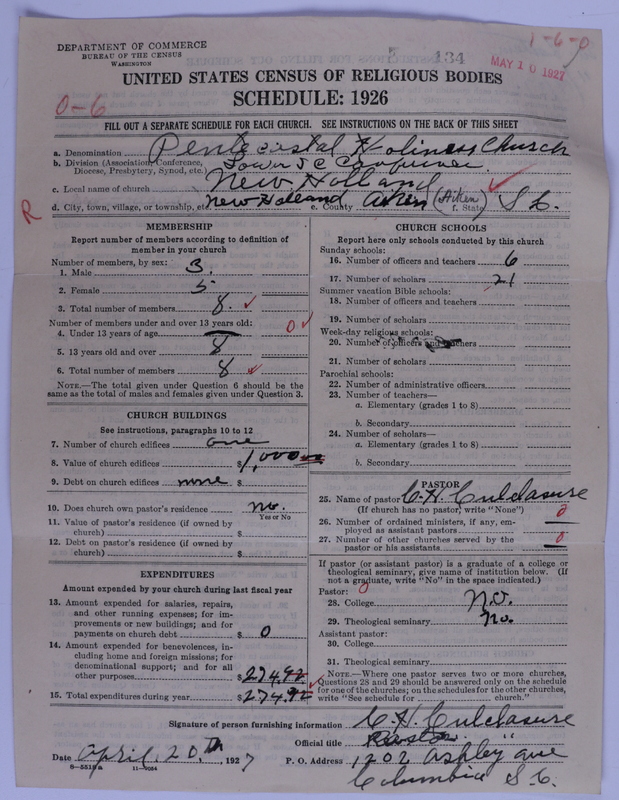 1-6-0
134
MAY 10 1927
DEPARTMENT OF COMMERCE
BUREAU OF THE CENSUS
WASHINGTON
UNITED STATES CENSUS OF RELIGIOUS BODIES
SCHEDULE: 1926
0-6
FILL OUT A SEPARATE SCHEDULE FOR EACH CHURCH. SEE INSTRUCTIONS ON THE BACK OF THIS SHEET
a. Denomination Pentecostal Holiness Church
b. Division (Association, Conference, Diocese, Presbytery, Synod, etc.) S C
c. Local name of church New Holland
d. City, town, village, or township, etc. New Holland e. County Aiken (Aiken) f. State S C.
R
MEMBERSHIP
Report number of members according to definition of
member in your church
Number of members, by sex:
1. Male 3.
2. Female 5
3. Total number of members 8.
Number of members under and over 13 years old: 0
4. Under 13 years of age
5. 13 years old and over 8
6. Total number of members 8
NOTE.—The total given under Question 6 should be
same as the total of males and females given under Question 3.
CHURCH BUILDINGS
See instructions, paragraphs 10 to 12
7. Number of church edifices one
8. Value of church edifices $ 1,000
9. Debt on church edifices none $
10. Does church own pastor's residence no.
Yes or No
11. Value of pastor's residence (if owned by
church) $
12. Debt on pastor's residence (if owned by
church) $
EXPENDITURES
Amount expended by your church during last fiscal year
13. Amount expended for salaries, repairs,
and other running expenses; for im-
provements or new buildings; and for
payments on church debt $ 0
14. Amount expended for benevolences, in-
cluding home and foreign missions; for
denominational support; and for all
other purposes $ 274.92
15. Total expenditures during year $ 274.92
CHURCH SCHOOLS
Report here only schools conducted by this church
Sunday schools:
16. Number of officers and teachers 6
17. Number of scholars 21
Summer vacation Bible schools:
18. Number of officers and teachers
19. Number of scholars
Week-day religious schools:
20. Number of officers and teachers
21. Number of scholars
Parochial schools:
22. Number of administrative officers
23. Number of teachers—
a. Elementary (grades 1 to 8)
b. Secondary
24. Number of scholars—
a. Elementary (grades 1 to 8)
b. Secondary
PASTOR
25. Name of pastor C. H. Culclasure
(If church has no pastor, write "None")
26. Number of ordained ministers, if any, em-
ployed as assistant pastors
27. Number of other churches served by the
pastor or his assistants
If pastor (or assistant pastor) is a graduate of a college or
theological seminary, give name of institution below. (If
not a graduate, write "No" in the space indicated.)
Pastor:
28. College No.
29. Theological seminary No.
Assistant pastor:
30. College
31. Theological seminary
NOTE.—Where one pastor serves two or more churches,
Questions 28 and 29 should be answered only on the schedule
for one of the churches; on the schedules for the other churches,
write "See schedule for church."
Signature of person furnishing information C. H. Culclasure
Official title Pastor
Date April, 20, th 1927 P. O. Address 1202 Ashley ave
Columbia S. C.
8-5518a 11-9054